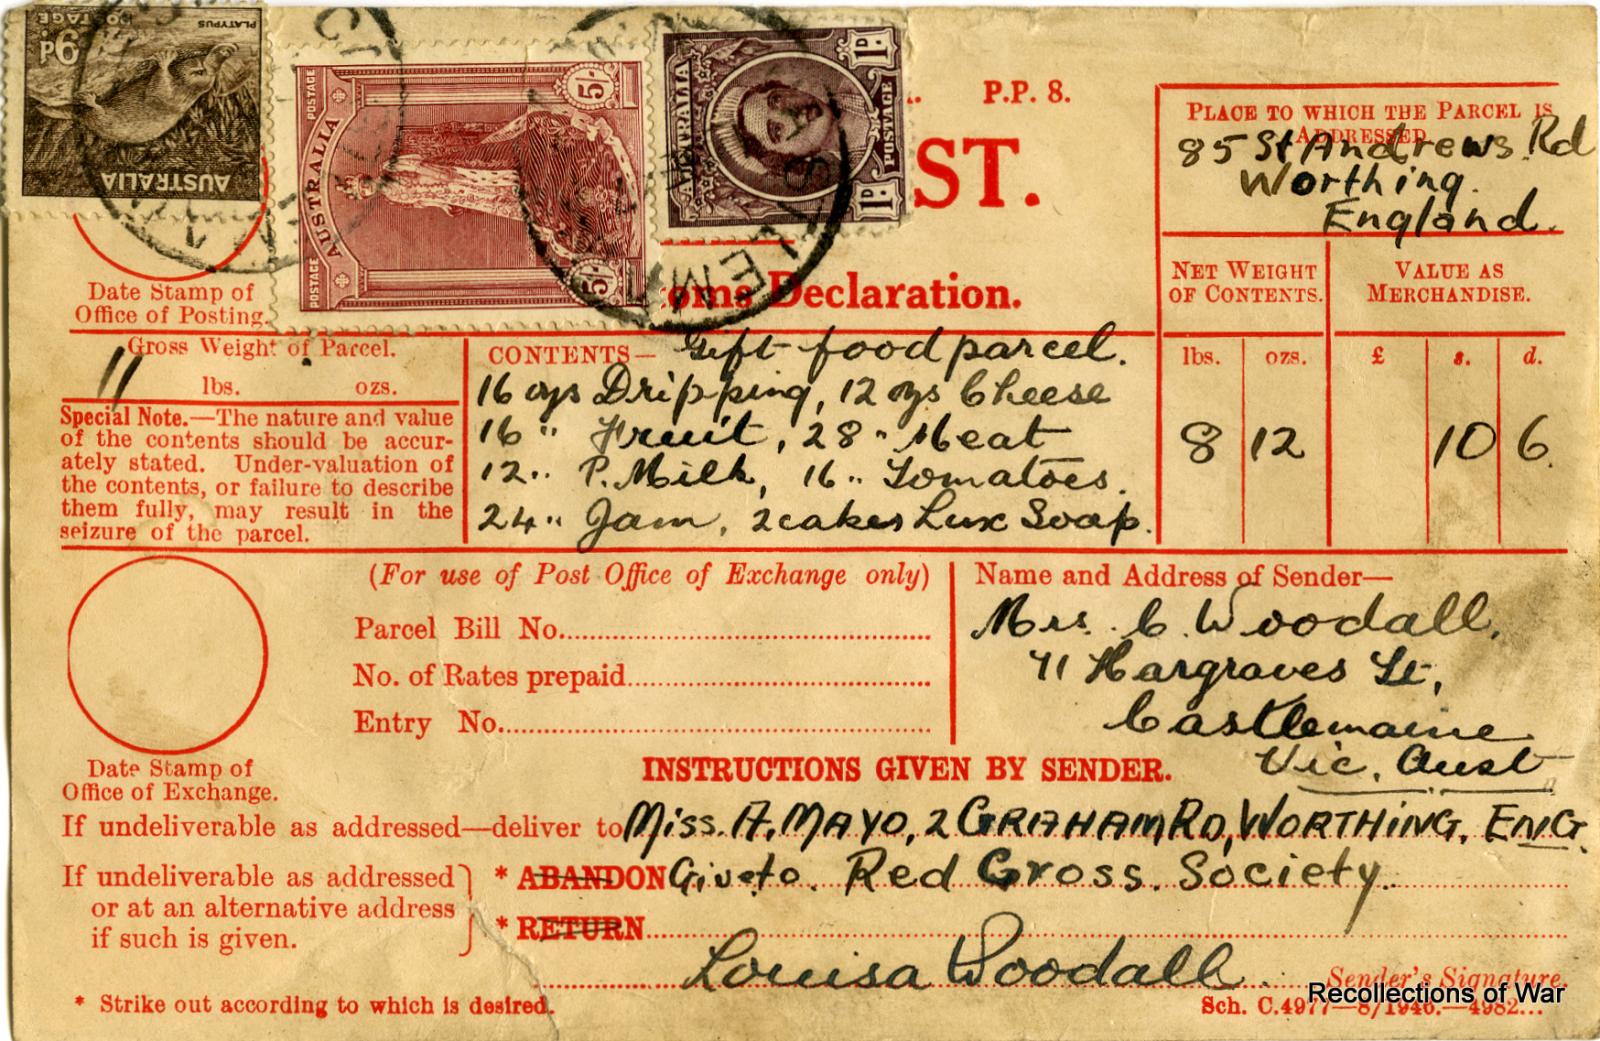 POSTAGE PLATYPUS
9D.
AUSTRALIA
POSTAGE AUSTRALIA POSTAGE
5/-
5/-
AUSTRALIA POSTAGE
1D.
1D.
P.P. 8.
ST.
oms Declaration.
PLACE TO WHICH THE PARCEL IS
ADDRESSED.
85 St Andrews Rd
Worthing.
England.
NET WEIGHT
OF CONTENTS.
VALUE AS
MERCHANDISE.
lbs. ozs. £ s. d.
8 12 10 6.
Date Stamp of
Office of Posting.
Gross Weight of Parcel.
11 lbs. ozs.
Special Note.—The nature and value
of the contents should be accur-
ately stated. Under-valuation of
the contents, or failure to describe
them fully, may result in the
seizure of the parcel.
CONTENTS— Gift food parcel.
16 ozs Dripping, 12 ozs Cheese
16 " Fruit, 28 " Meat
12 " P. Milk, 16 " Tomatoes.
24 " Jam, 2 cakes Lux Soap.
(For use of Post Office of Exchange only)
Parcel Bill No.
No. of Rates prepaid
Entry No.
Date Stamp of
Office of Exchange.
Name and Address of Sender—
Mrs. C. Woodall,
71 Hargraves St,
Castlemaine
Vic. Aust
INSTRUCTIONS GIVEN BY SENDER.
If undeliverable as addressed—deliver to Miss. A. MAYO, 2 GRAHAM RD, WORTHING, ENG.
If undeliverable as addressed
or at an alternative address
if such is given.
* ABANDON Give to Red Cross Society.
* RETURN
Louisa Woodall.
Sender's Signature.
* Strike out according to which is desired.
Sch. C.4977—8/1946.—4982...
Recollections of War